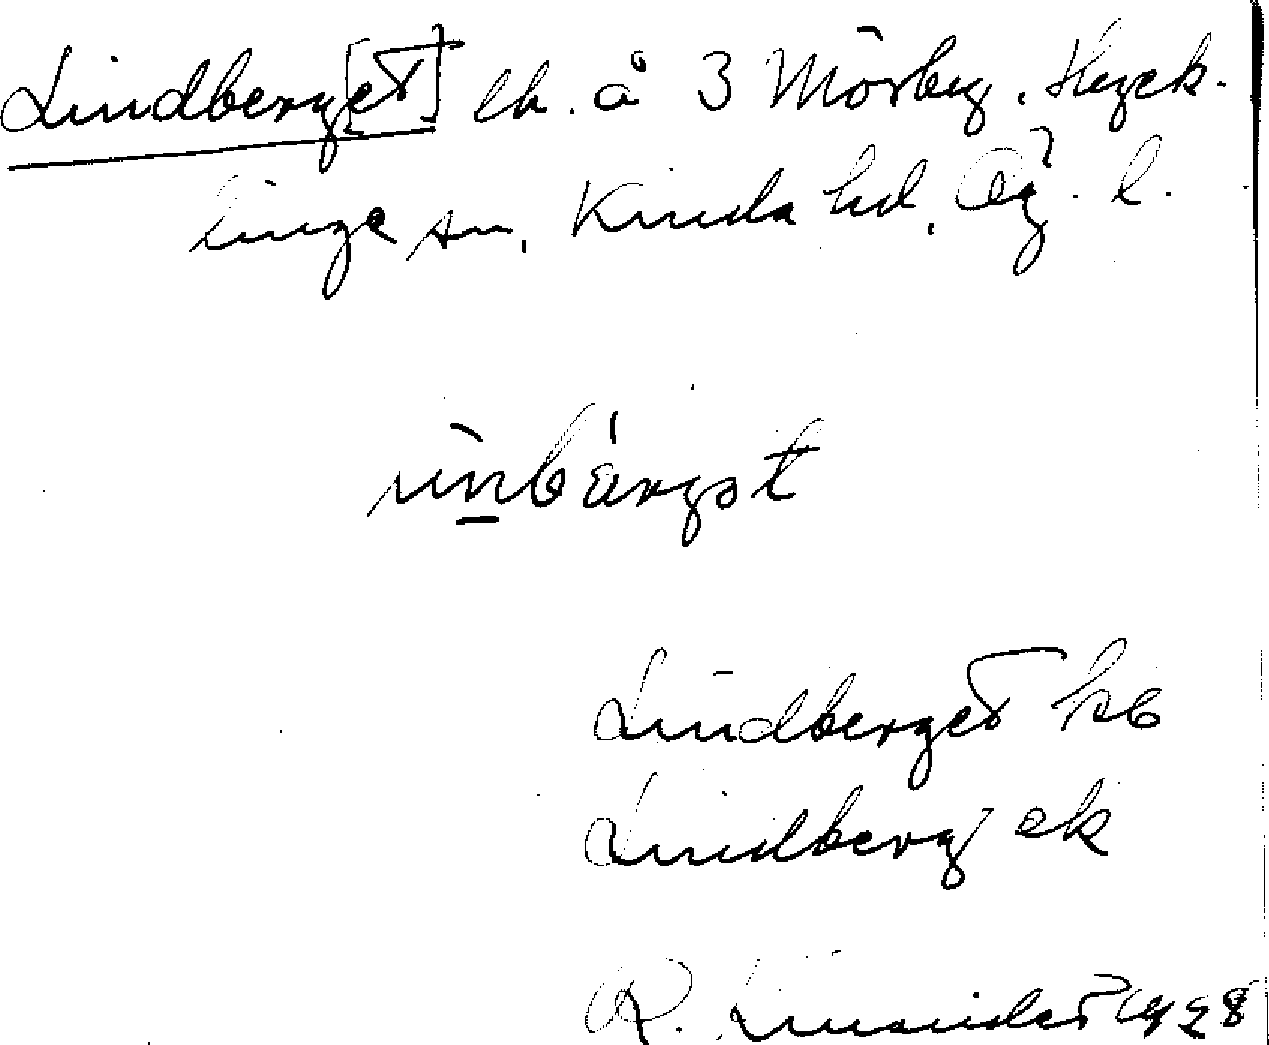 Lindberg[et] lh. å 3 Mörby, Hyck-
linge sn, Kinda hd, Ög. l.
Lindberget hb
Lindberg ek
R. Linander 1928